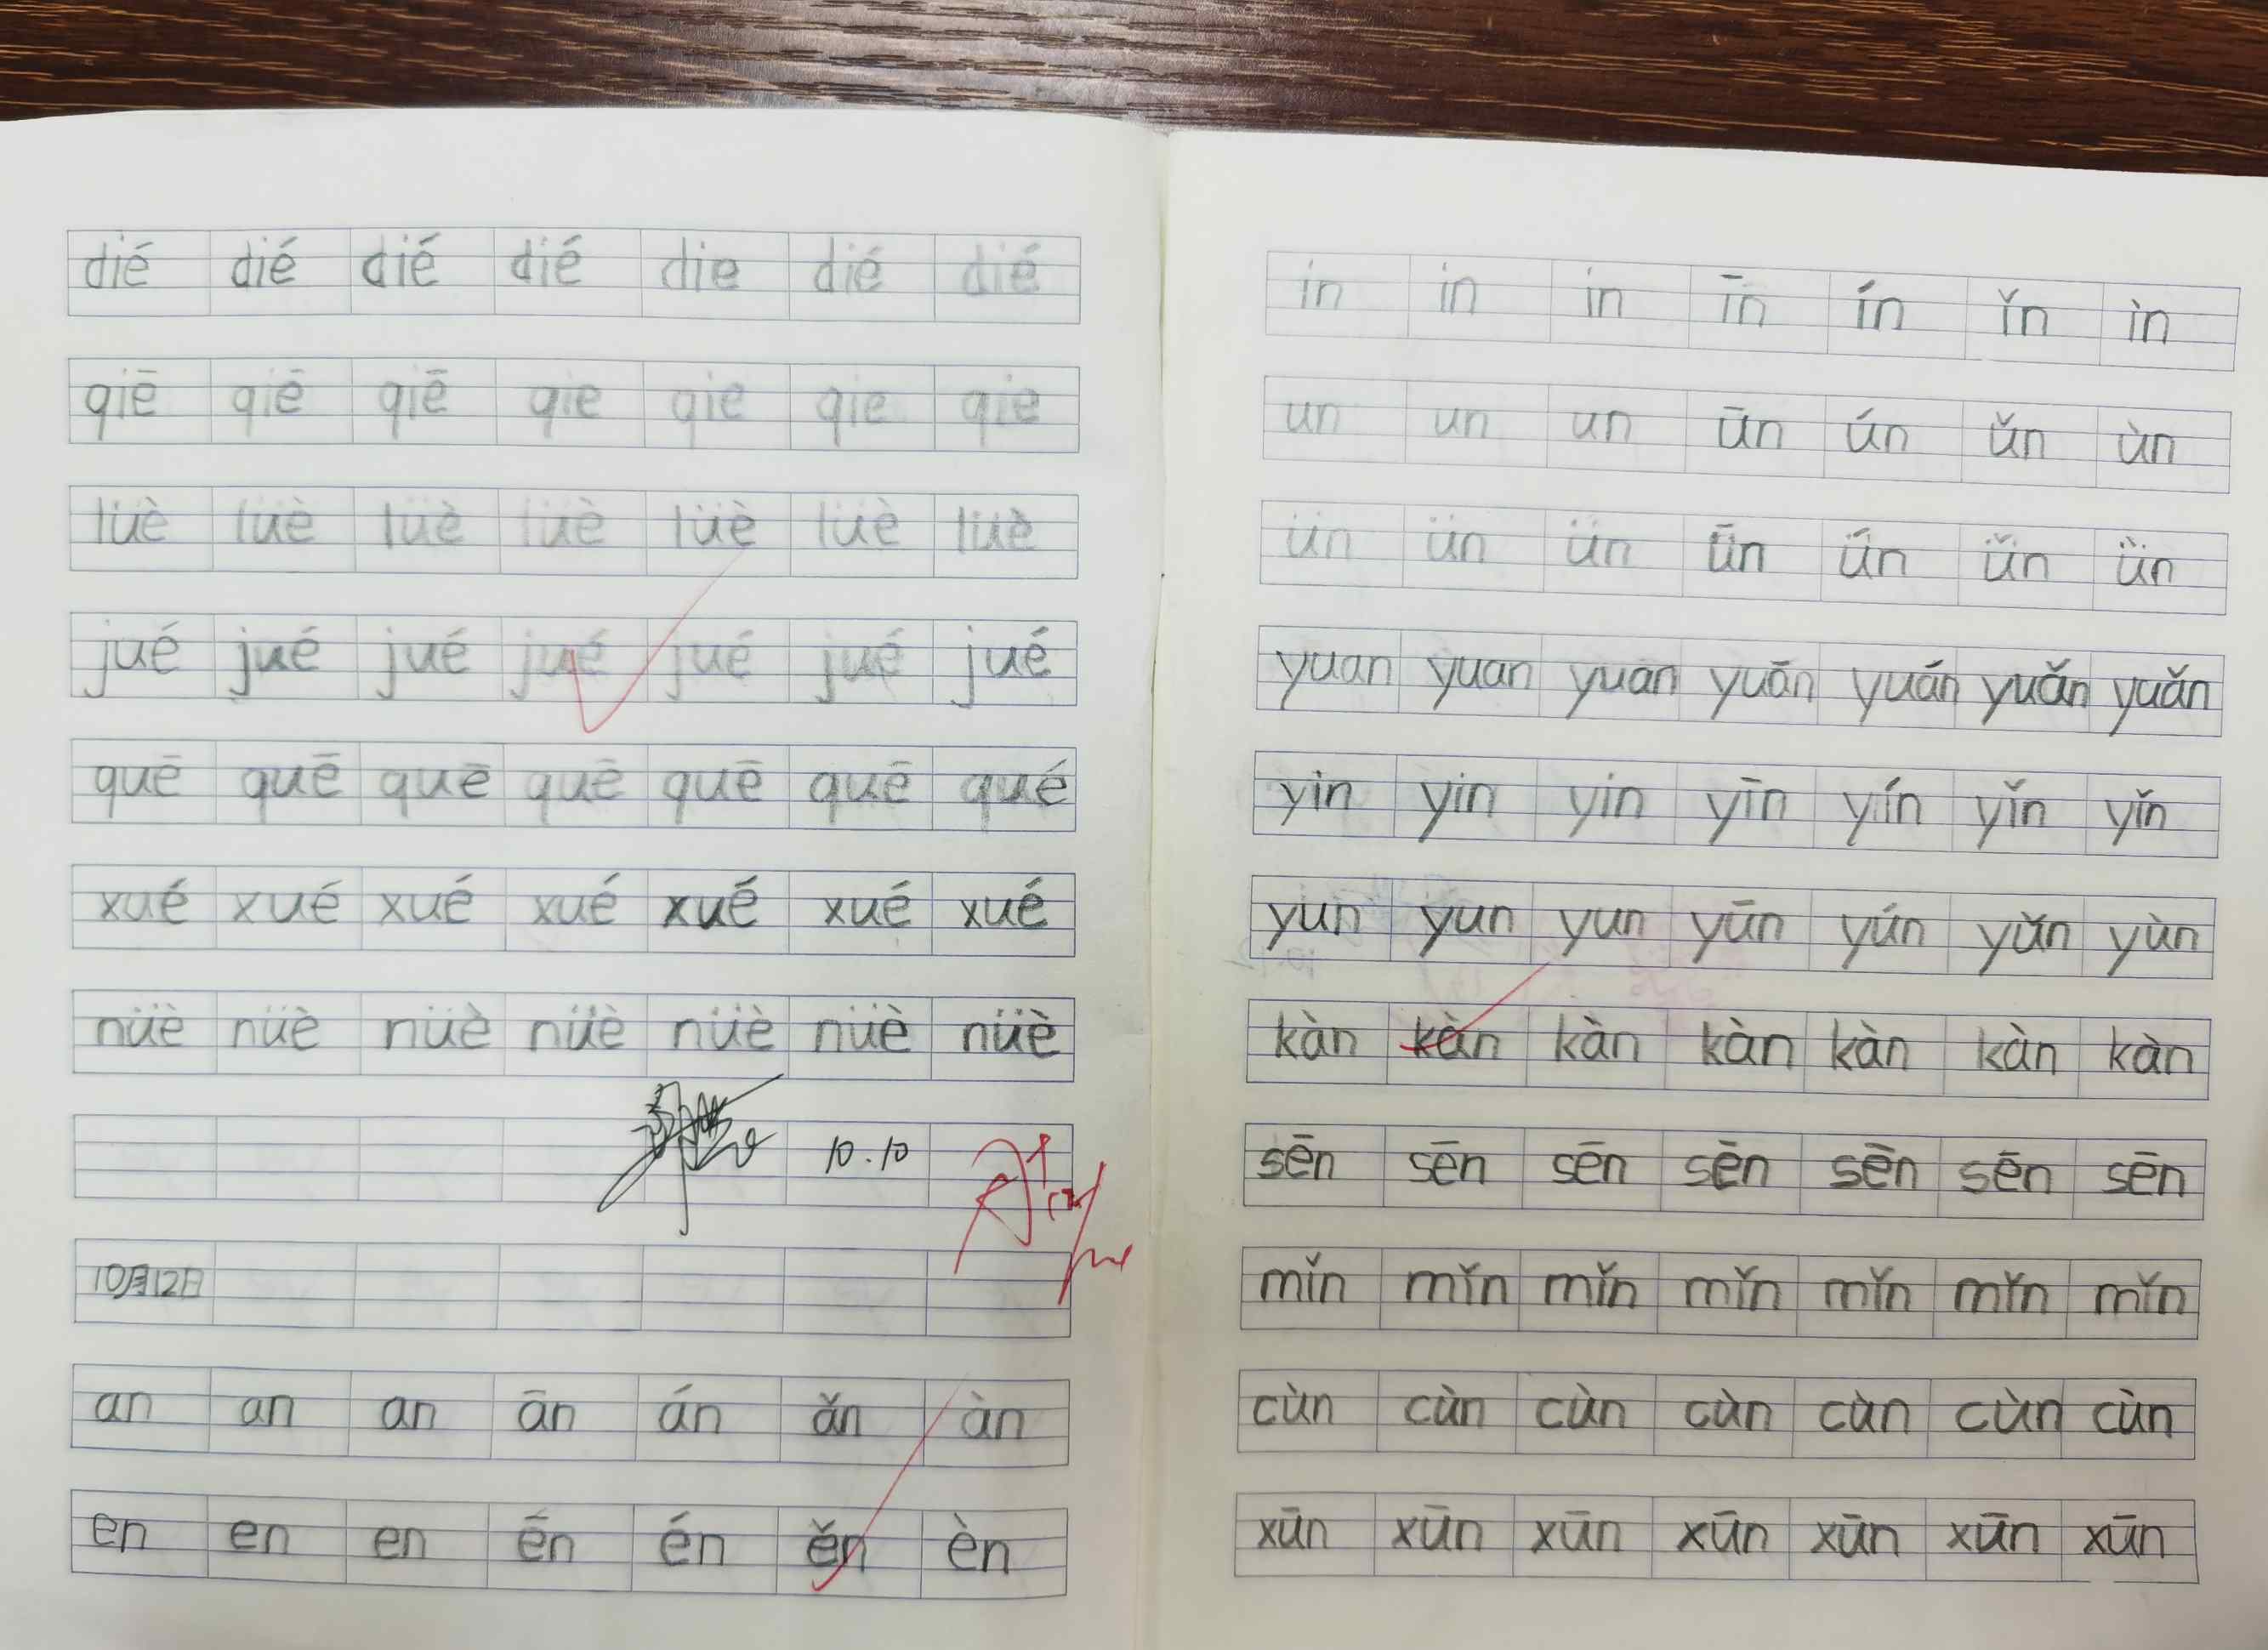 dié dié dié dié die dié dié
qiē qiē qiē qie qie qie qie
lüè lüè lüè lüè lüè lüè lüè
jué jué jué jué jué jué jué
quē quē quē quē quē quē qué
xué xué xué xué xué xué xué
nüè nüè nüè nüè nüè nüè nüè
10.10
10月12日
an an an ān án ǎn àn
en en en ēn én ěn èn
in in in īn ín ǐn ìn
un un un ūn ún ǔn ùn
ün ün ün ǖn ǘn ǚn ǜn
yuan yuan yuan yuān yuán yuǎn yuǎn
yin yin yin yīn yín yǐn yǐn
yun yun yun yūn yún yǔn yùn
kàn kàn kàn kàn kàn kàn kàn
sēn sēn sēn sēn sēn sēn sēn
mǐn mǐn mǐn mǐn mǐn mǐn mǐn
cùn cùn cùn cùn cùn cùn cùn
xūn xūn xūn xūn xūn xūn xūn